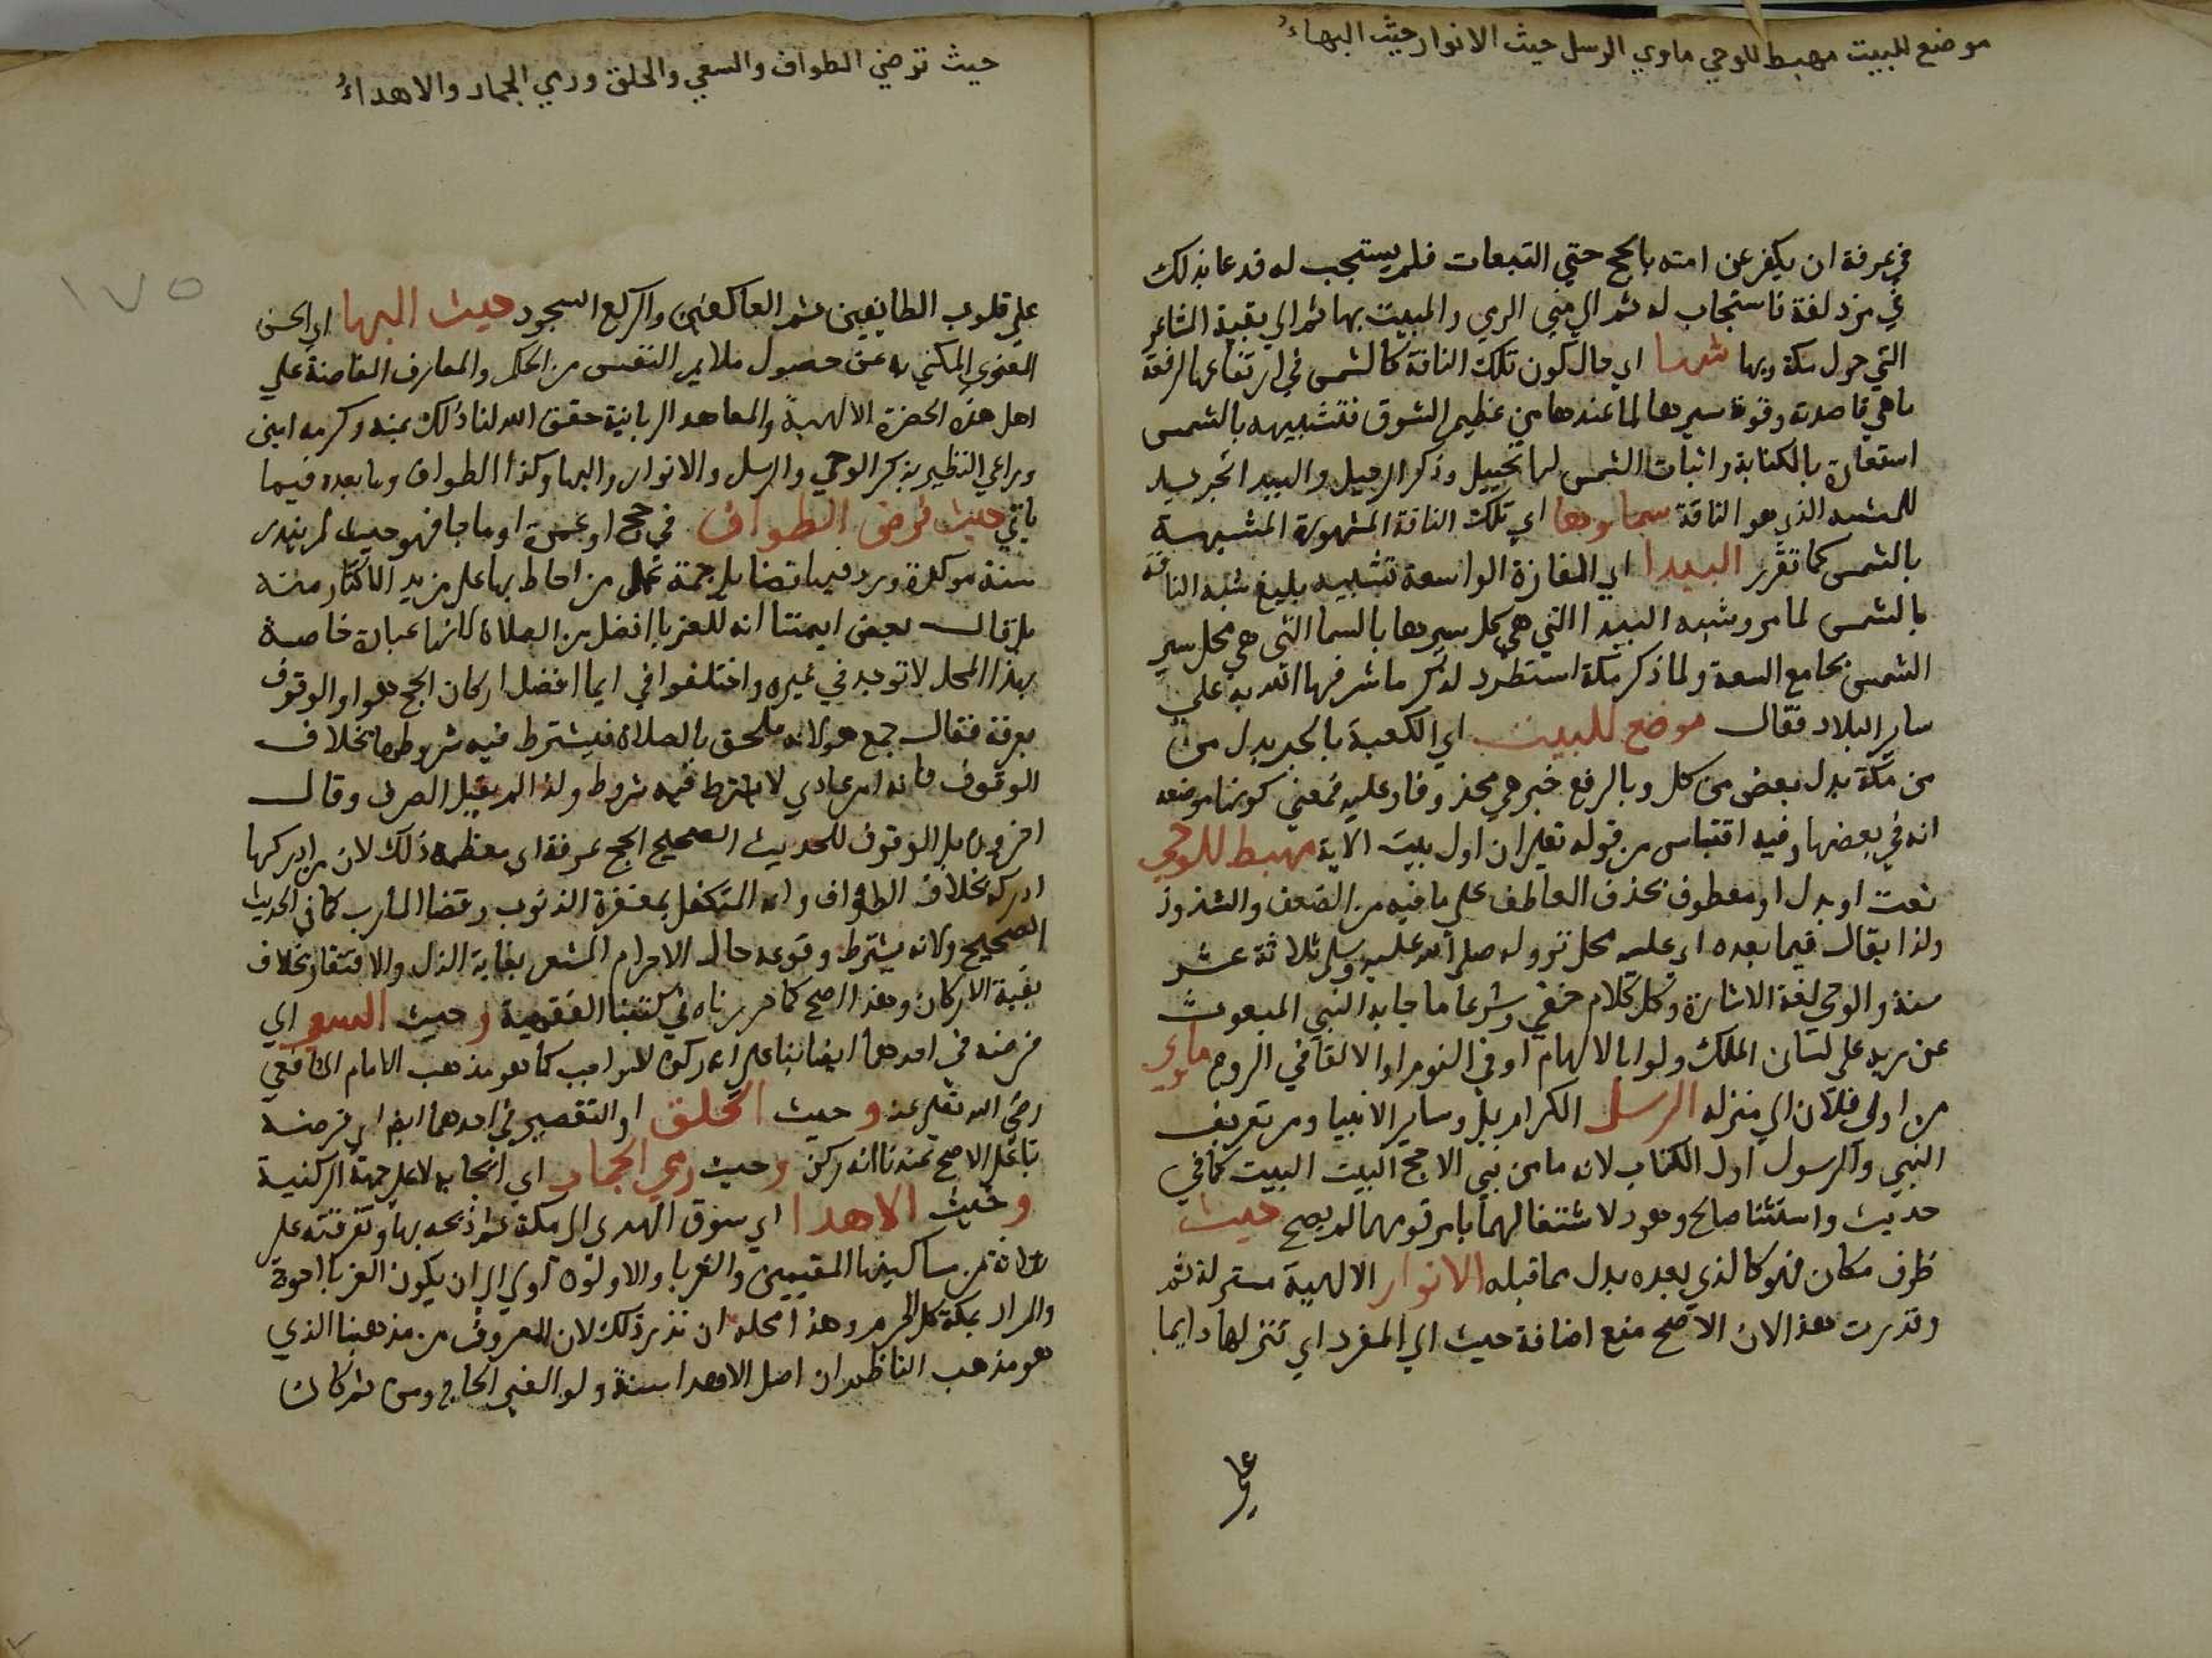 موضع للبيت مهبط للوحي ماوي الرسل حيث الانوار حيث البهاءُ
في عرفة ان يكفر عن امته بالحج حتي التبعات فلم يستجب له فدعا بذلك
في مزدلفة فاستجاب له ثم الي مني الرمي والمبيت بها ثم الي بقية المشاعر
التي حول مكة وبها شمسا اي حال كون تلك الناقة كالشمس في ارتفاعها لرفعة
ما هي قاصدته وقوة سيرها لما عندها من عظيم الشوق فتشبيهه بالشمس
استعارة بالكناية واثبات الشمس لها تخييل وذكر الرحيل والبيد تجريد
للمشبه الذي هو الناقة سماوها اي تلك الناقة المشهورة المشبهة
بالشمس كما تقرر البيدا اي المفازة الواسعة تشبيه بليغ شبه الناقة
بالشمس لما مر وشبه البيدا التي هي محل سيرها بالسما التي هي محل سير
الشمس بجامع السعة ولما ذكر مكة استطرد لذكر ما شرفها الله به علي
ساير البلاد فقال موضع للبيت اي الكعبة بالجر بدل من
من مكة بدل بعض من كل وبالرفع خبر هي محذوفا وعليه فمعني كونها موضعه
انه في بعضها وفيه اقتباس من قوله تعالي ان اول بيت الاية مهبط للوحي
نعت او بدل او معطوف بحذف العاطف علي ما فيه من الضعف والشذوذ
ولذا يقال فيما بعده اي عليه محل نزوله صلي الله عليه وسلم ثلاثة عشر
سنة والوحي لغة الاشارة وكل كلام خفي وشرعا ما جا به النبي المبعوث
عن ربه علي لسان الملك ولو بالالهام او في النوم او الالقا في الروع ماوي
من اوي فلان الي منزله الرسل الكرام بل وساير الانبيا ومر تعريف
النبي والرسول اول الكتاب لانه ما من نبي الا حج البيت البيت كما في
حديث واستثنا صالح وهود لاشتغالهما بامر قومهما لم يصح حيث
ظرف مكان فهو كالذي بعده بدل مما قبله الانوار الالهية مستمرلة ثم
وقدرت هذا لان الاصح منع اضافة حيث الي المفرد اي تنزلها دايما
علي
حيث فرض الطواف والسعي والحلق ورمي الجمار والاهداءُ
١٧٥
علي قلوب الطايفين ثم العاكفين والركع السجود حيث البها اي الحسن
المعنوي المكني به عن حصول ملايم النفس من الحكم والمعارف الفاضة علي
اهل هذه الحضرة الالهية والمعاهد الربانية حقق الله لنا ذلك بمنه وكرمه امين
وراعي النظير بذكر الوحي والرسل والانوار والبها وكذا الطواف وما بعده فيما
ياتي حيث فرض الطواف في حج او عمرة او ما جا فهو حيث لم ينذر
سنة موكدة ورد فيها فضايل جمة تحمل من احاط بها علي مزيد الاكثار منه
بل قال بعض ايمتنا انه للغربا افضل من الصلاة لانها عبادة خاصة
بهذا المحل لا توجد في غيره واختلفوا في ايما افضل اركان الحج هو او الوقوف
بعرفة فقال جمع هو لانه ملحق بالصلاة فيشترط فيه شروطها بخلاف
الوقوف فانه امر عادي لا يشترط فيه شروط ولذا لم يقبل الصرف وقال
اخرون بل الوقوف للحديث الصحيح الحج عرفة اي معظمه ذلك لان من ادركها
ادركه بخلاف الطواف وانه المتكفل بمغفرة الذنوب وقضا المارب كما في الحديث
الصحيح ولانه يشترط وقوعه حال الاحرام المشعر بغاية الذل والافتقار بخلاف
بقية الاركان وهذا اصح كما حررناه في كتبنا الفقهية وحيث السعي اي
فرضه في احدهما ايضا بنا علي انه ركن لا واجب كما هو مذهب الامام الشافعي
رضي الله تعالي عنه وحيث الحلق او التقصير في احدهما ايضا اي فرضه
بنا علي الاصح عندنا انه ركن وحيث رمي الجمار اي ايجابه لا علي جهة الركنية
وحيث الاهدا اي سوق الهدي الي مكة ثم ذبحه بها وتفرقته علي
ثلاثة من مساكينها المقيمين والغربا والاولون اولي الا ان يكون الغربا احوج
والمراد بمكة كل الحرم وهذا محله ان نذر ذلك لان المعروف من مذهبنا الذي
هو مذهب الناظم ان اصل الاهدا سنة ولو الغني الحاج ومن ثم كان